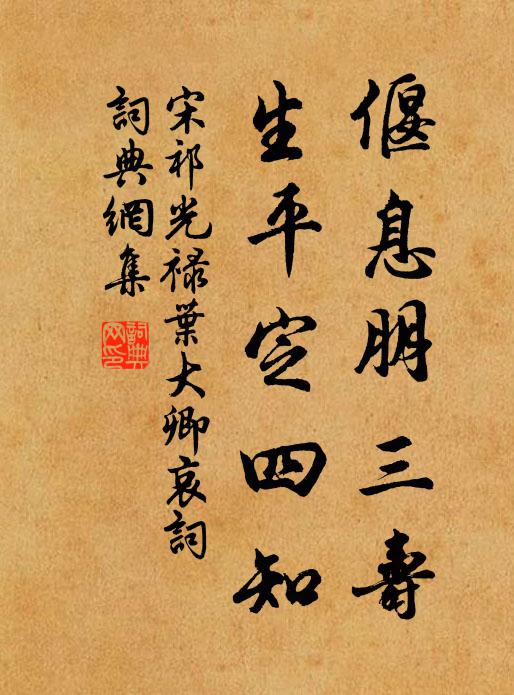 偃息朋三壽
生平定四知
宋祁光祿葉大卿哀詞
詞典網集
詞典網印